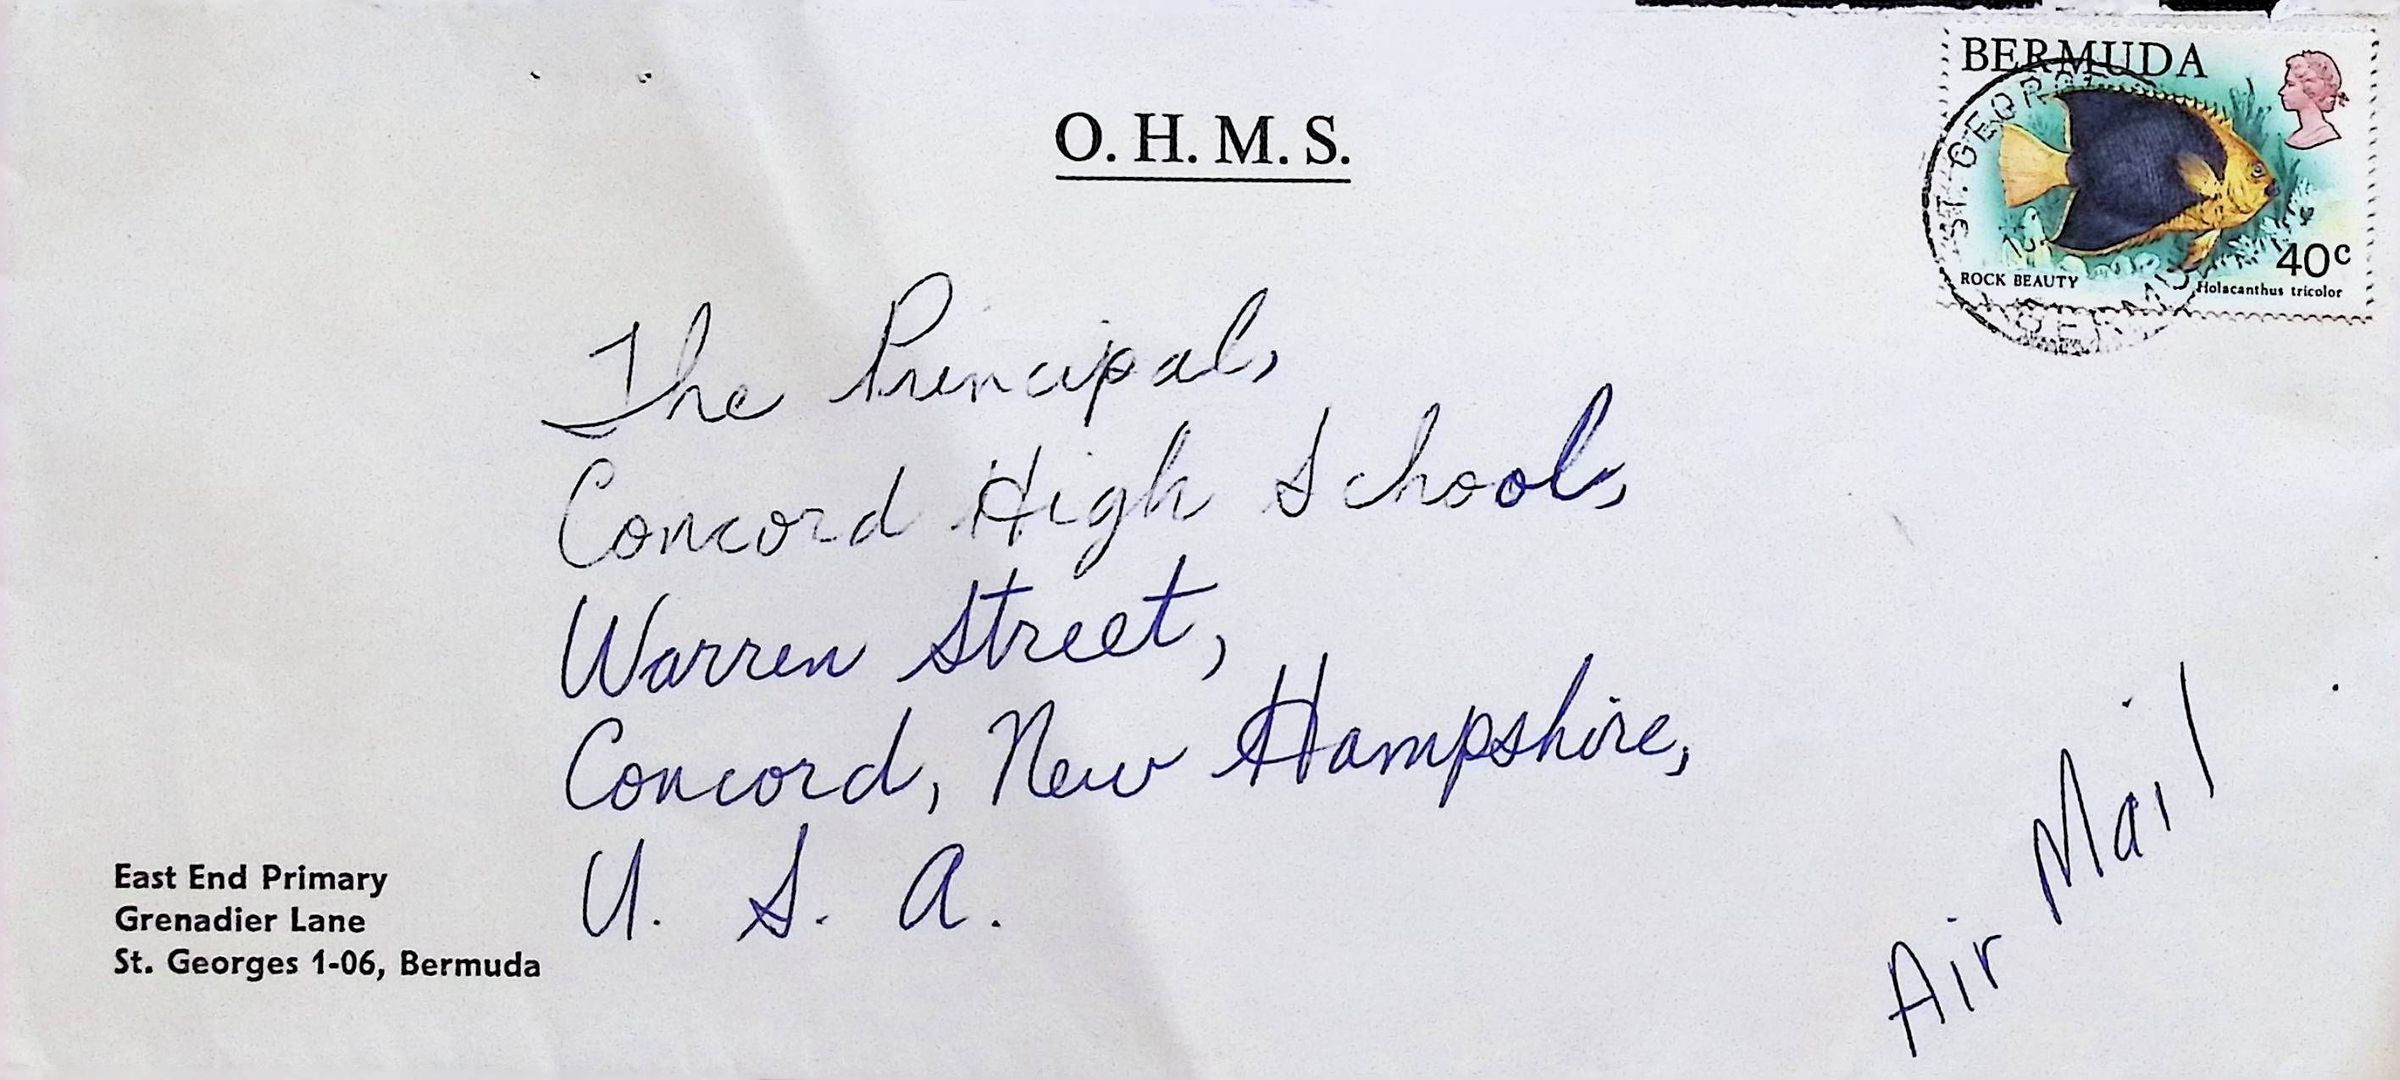 O. H. M. S.
BERMUDA
ST. GEORGE
40c
ROCK BEAUTY
Holacanthus tricolor
The Principal,
Concord High School,
Warren Street,
Concord, New Hampshire,
U. S. A.
East End Primary
Grenadier Lane
St. Georges 1-06, Bermuda
Air Mail